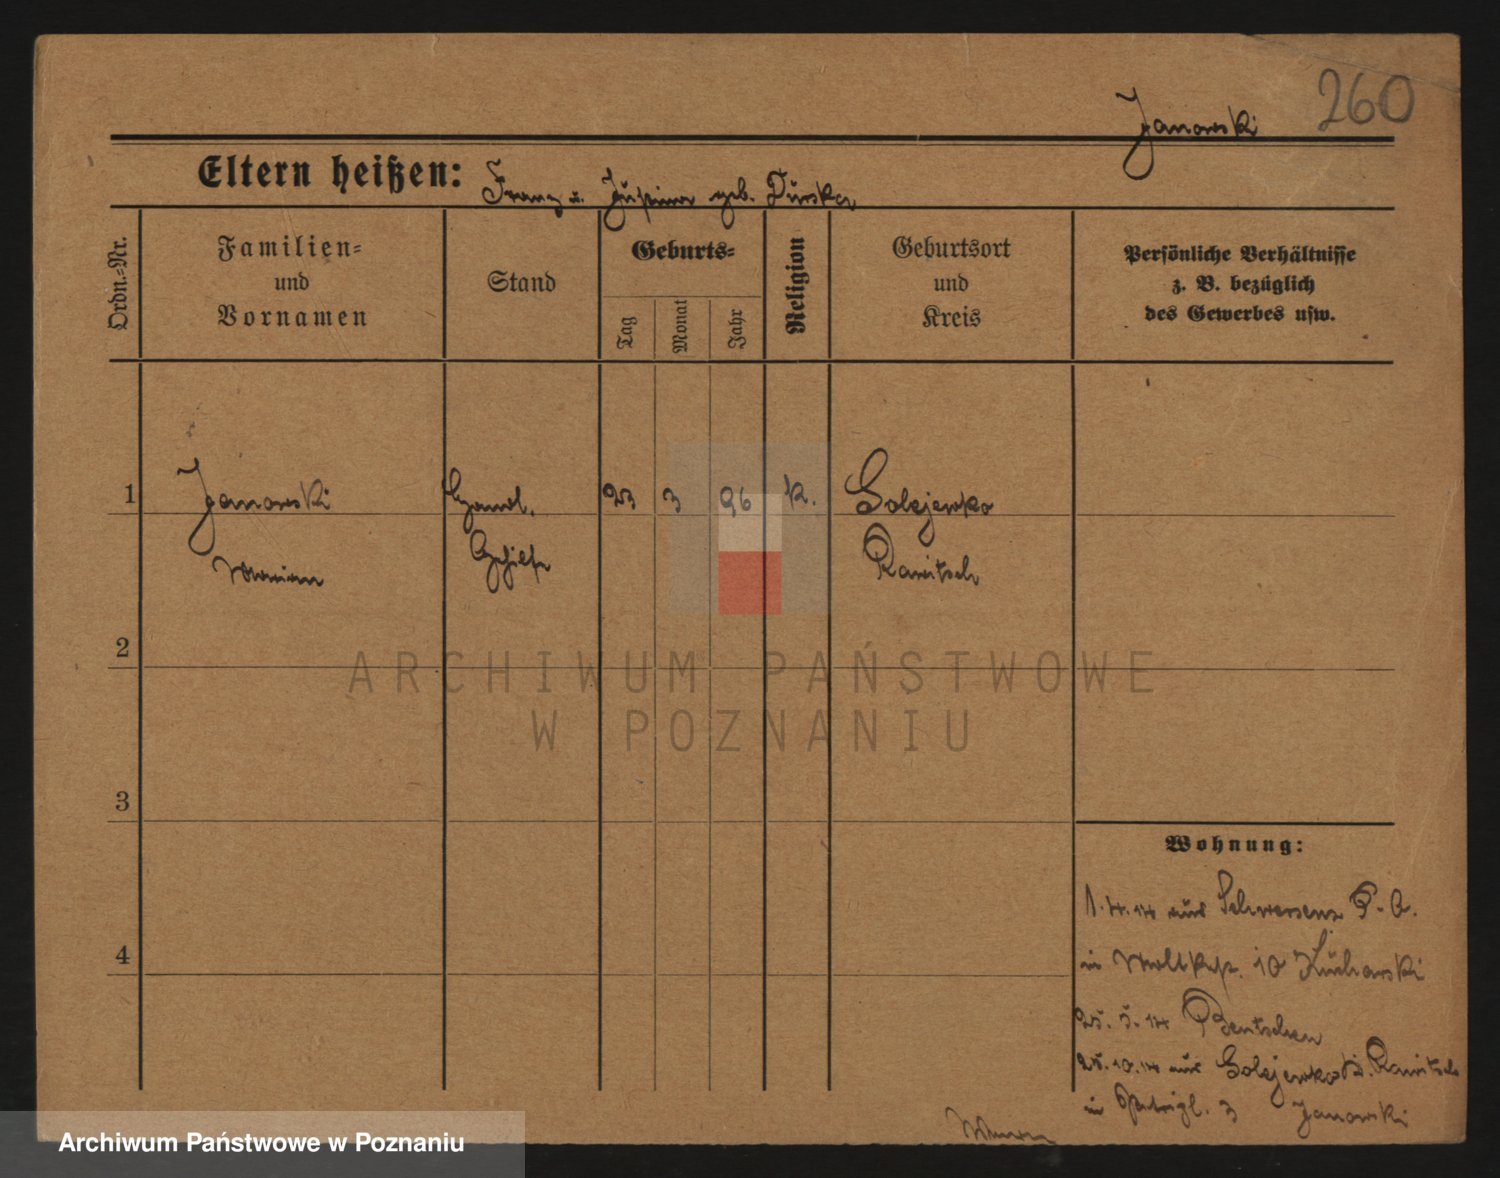 260
Janowski
Eltern heißen: Franz u. Justina geb. Turska
Ordn.-Nr.
Familien-
und
Vornamen
Stand
Geburts-
Tag
Monat
Jahr
Religion
Geburtsort
und
Kreis
Persönliche Verhältnisse
z. B. bezüglich
des Gewerbes usw.
1 Janowski Handl. 23 3 96 k. Golejewko
Marian Gehilfe Rawitsch
2
ARCHIWUM PAŃSTWOWE
W POZNANIU
3
Wohnung:
1.4.14 aus Schwersenz P-O.
4
in Moltkestr. 10 Kucharski
25.5.14 Bentschen
25.10.14 aus Golejewko Kr. Rawitsch
in 3 Janowski
Archiwum Państwowe w Poznaniu